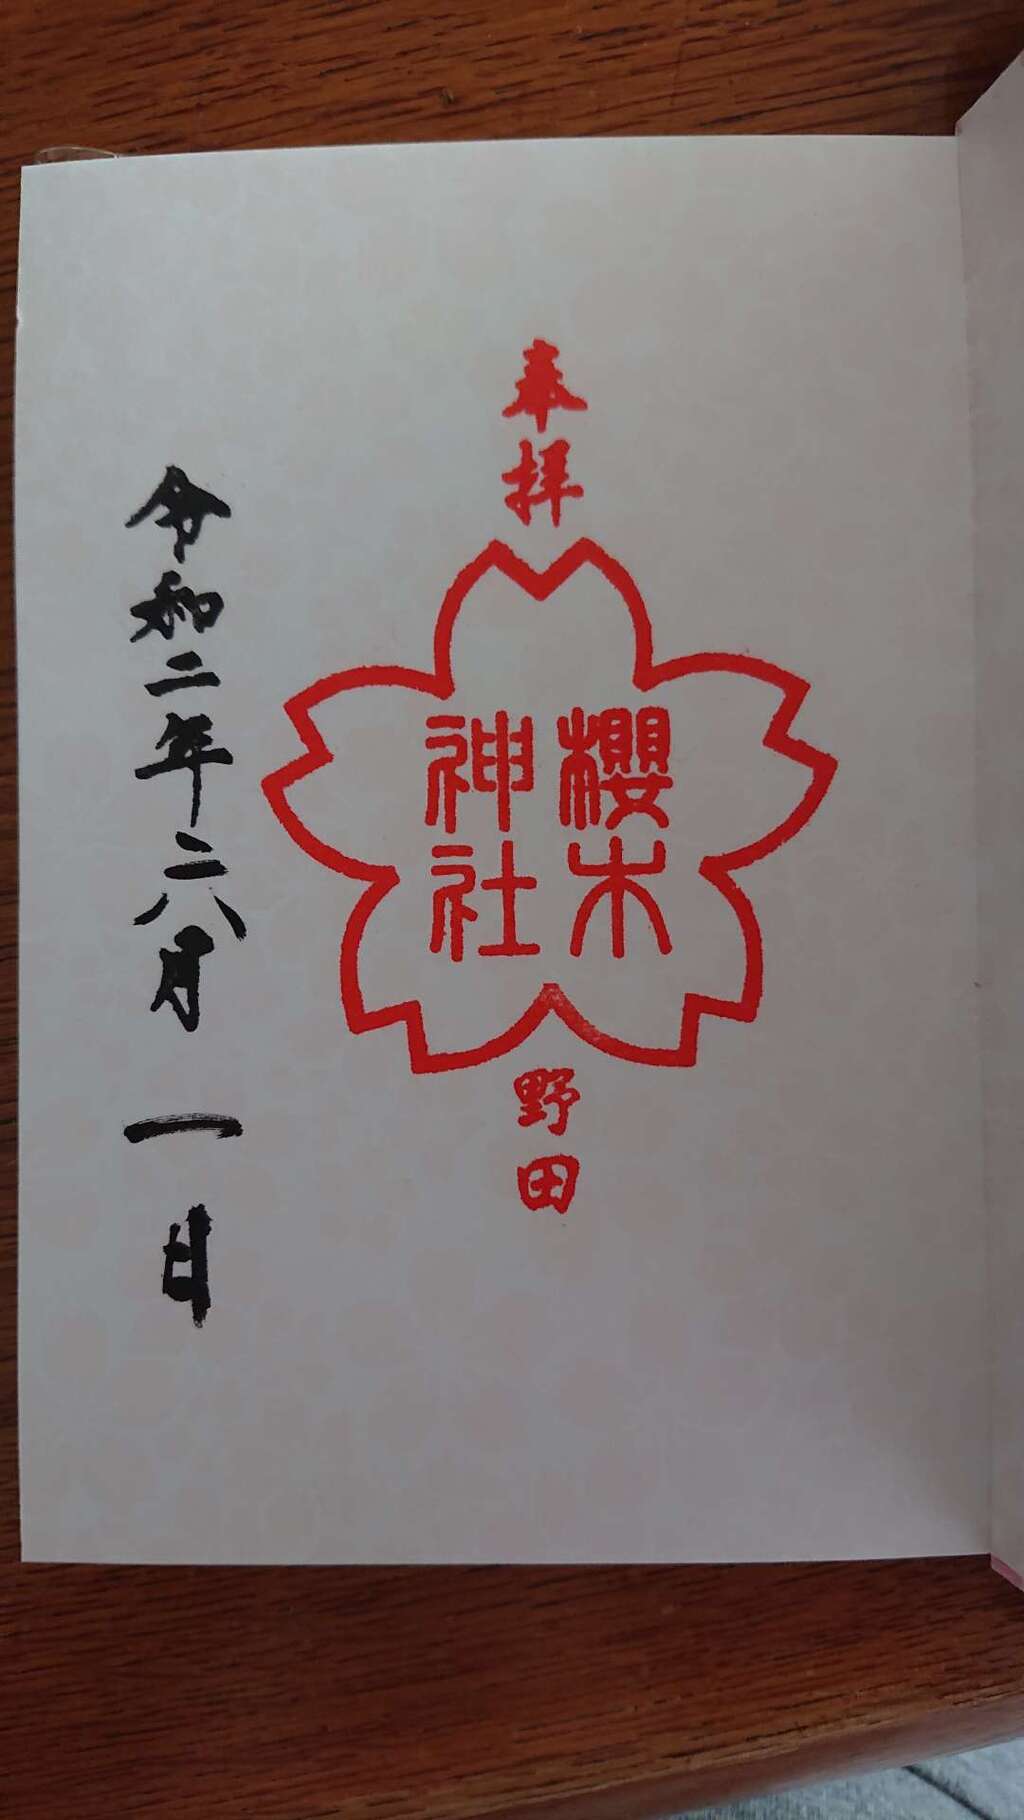 奉拝
櫻木
神社
野田
令和二年六月一日